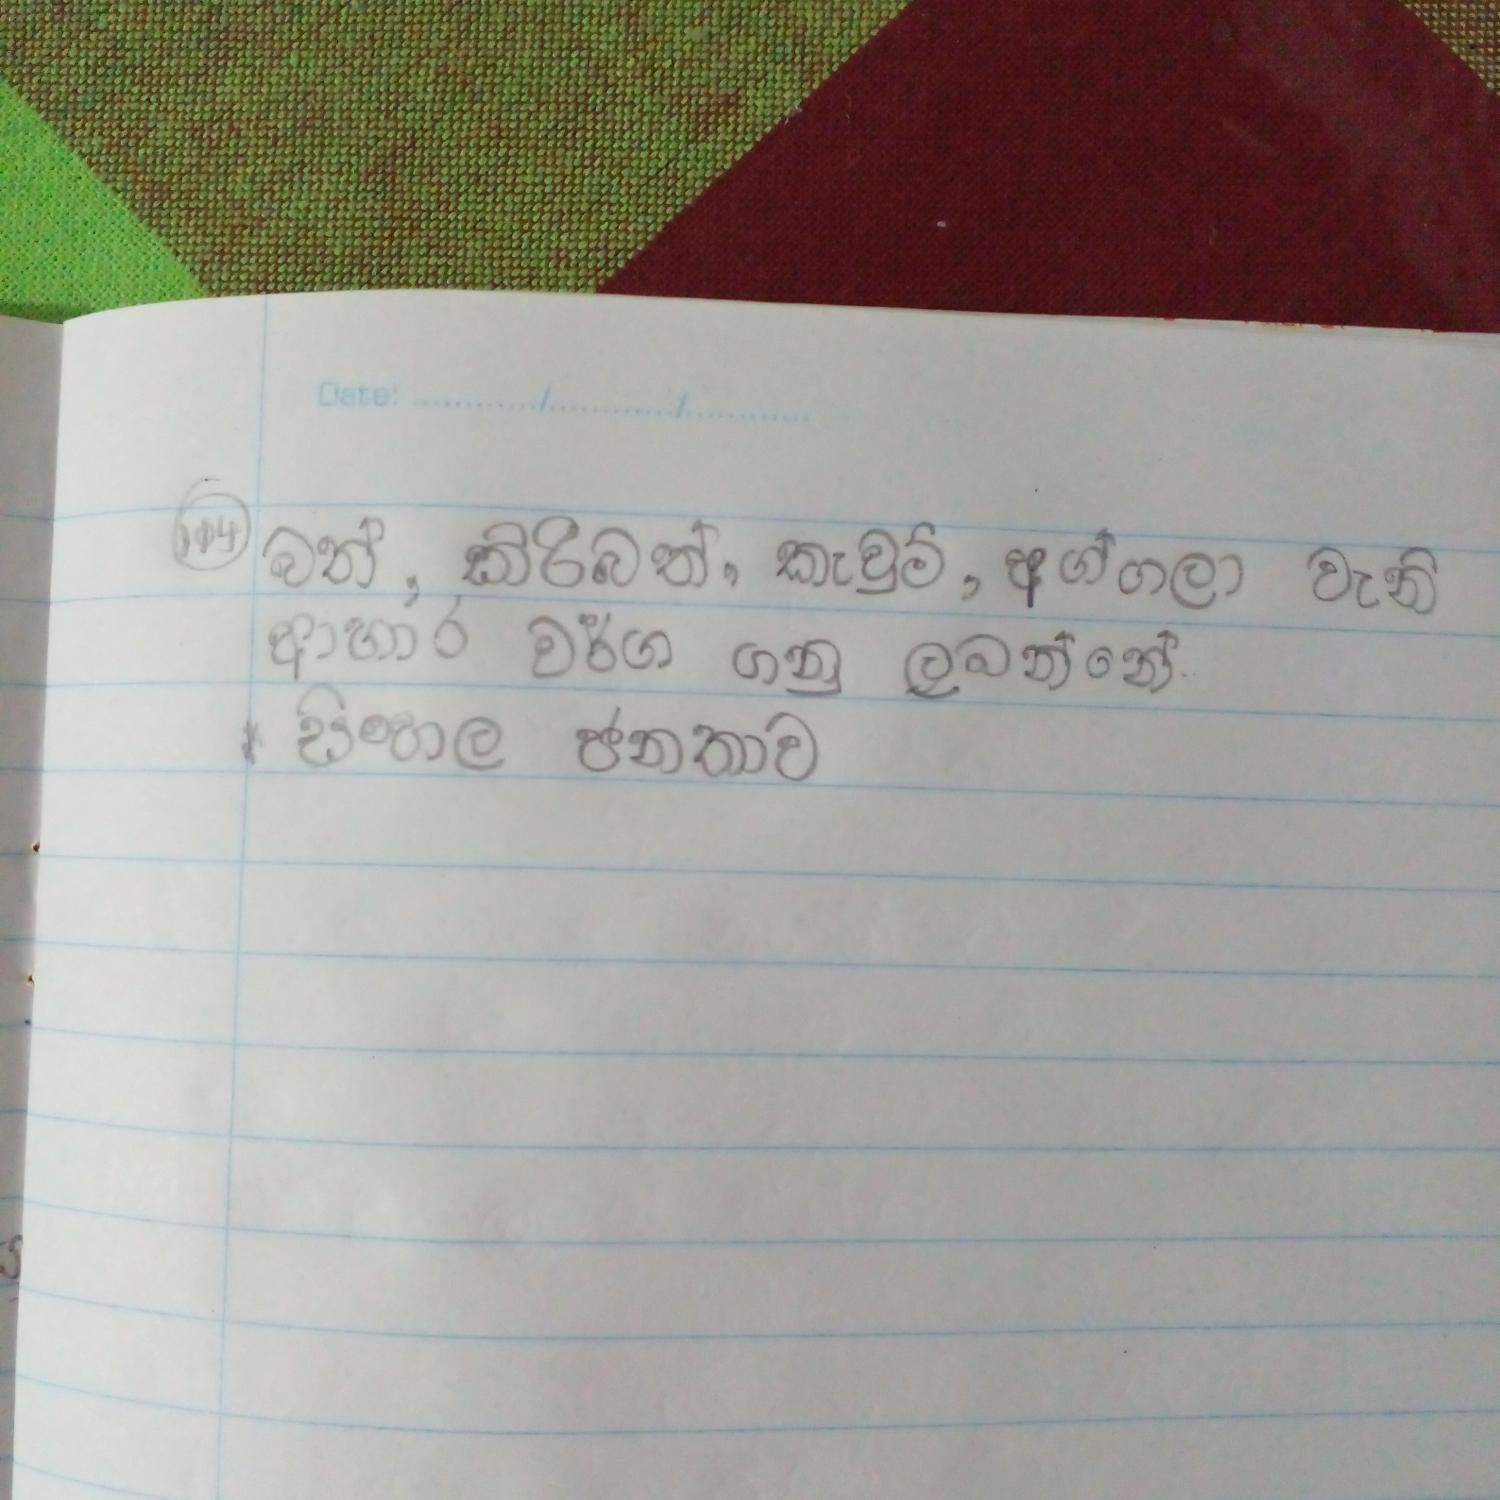 Date: ........../........../..........
114 බත්, කිරිබත්, කැවුම්, අග්ගලා වැනි
ආහාර වර්ග ගනු ලබන්නේ.
* සිංහල ජනතාව